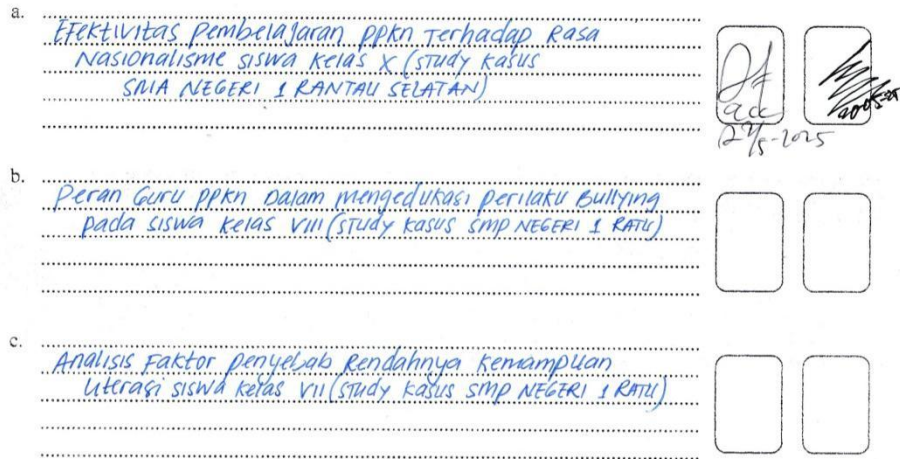 a.
Efektivitas pembelajaran ppkn Terhadap Rasa
Nasionalisme siswa kelas X (study kasus
SMA NEGERI 1 RANTAU SELATAN)
acc
27/5-2025
b.
Peran Guru ppkn Dalam mengedukasi perilaku Bullying
pada siswa kelas VIII (study kasus SMP NEGERI 1 RATU)
c.
Analisis Faktor penyebab Rendahnya kemampuan
literasi siswa kelas VII (study kasus SMP NEGERI 1 RATU)